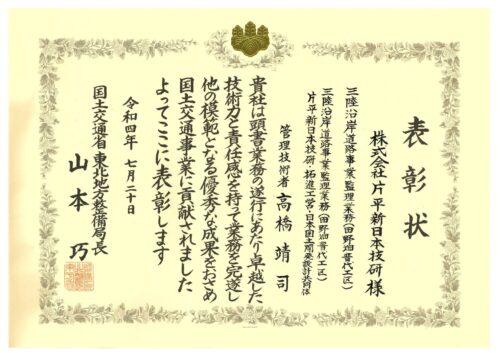 表彰状
株式会社 片平新日本技研 様
三陸沿岸道路事業監理業務(田野畑普代工区)
三陸沿岸道路事業監理業務(田野畑普代工区)
片平新日本技研・拓進工営・日本国土開発設計共同体
管理技術者 高橋靖司
貴社は頭書業務の遂行にあたり卓越した
技術力と責任感を持って業務を完遂し
他の模範となる優秀な成果をおさめ
国土交通事業に貢献されました
よってここに表彰します
令和四年 七月二十日
国土交通省 東北地方整備局長
山本 巧